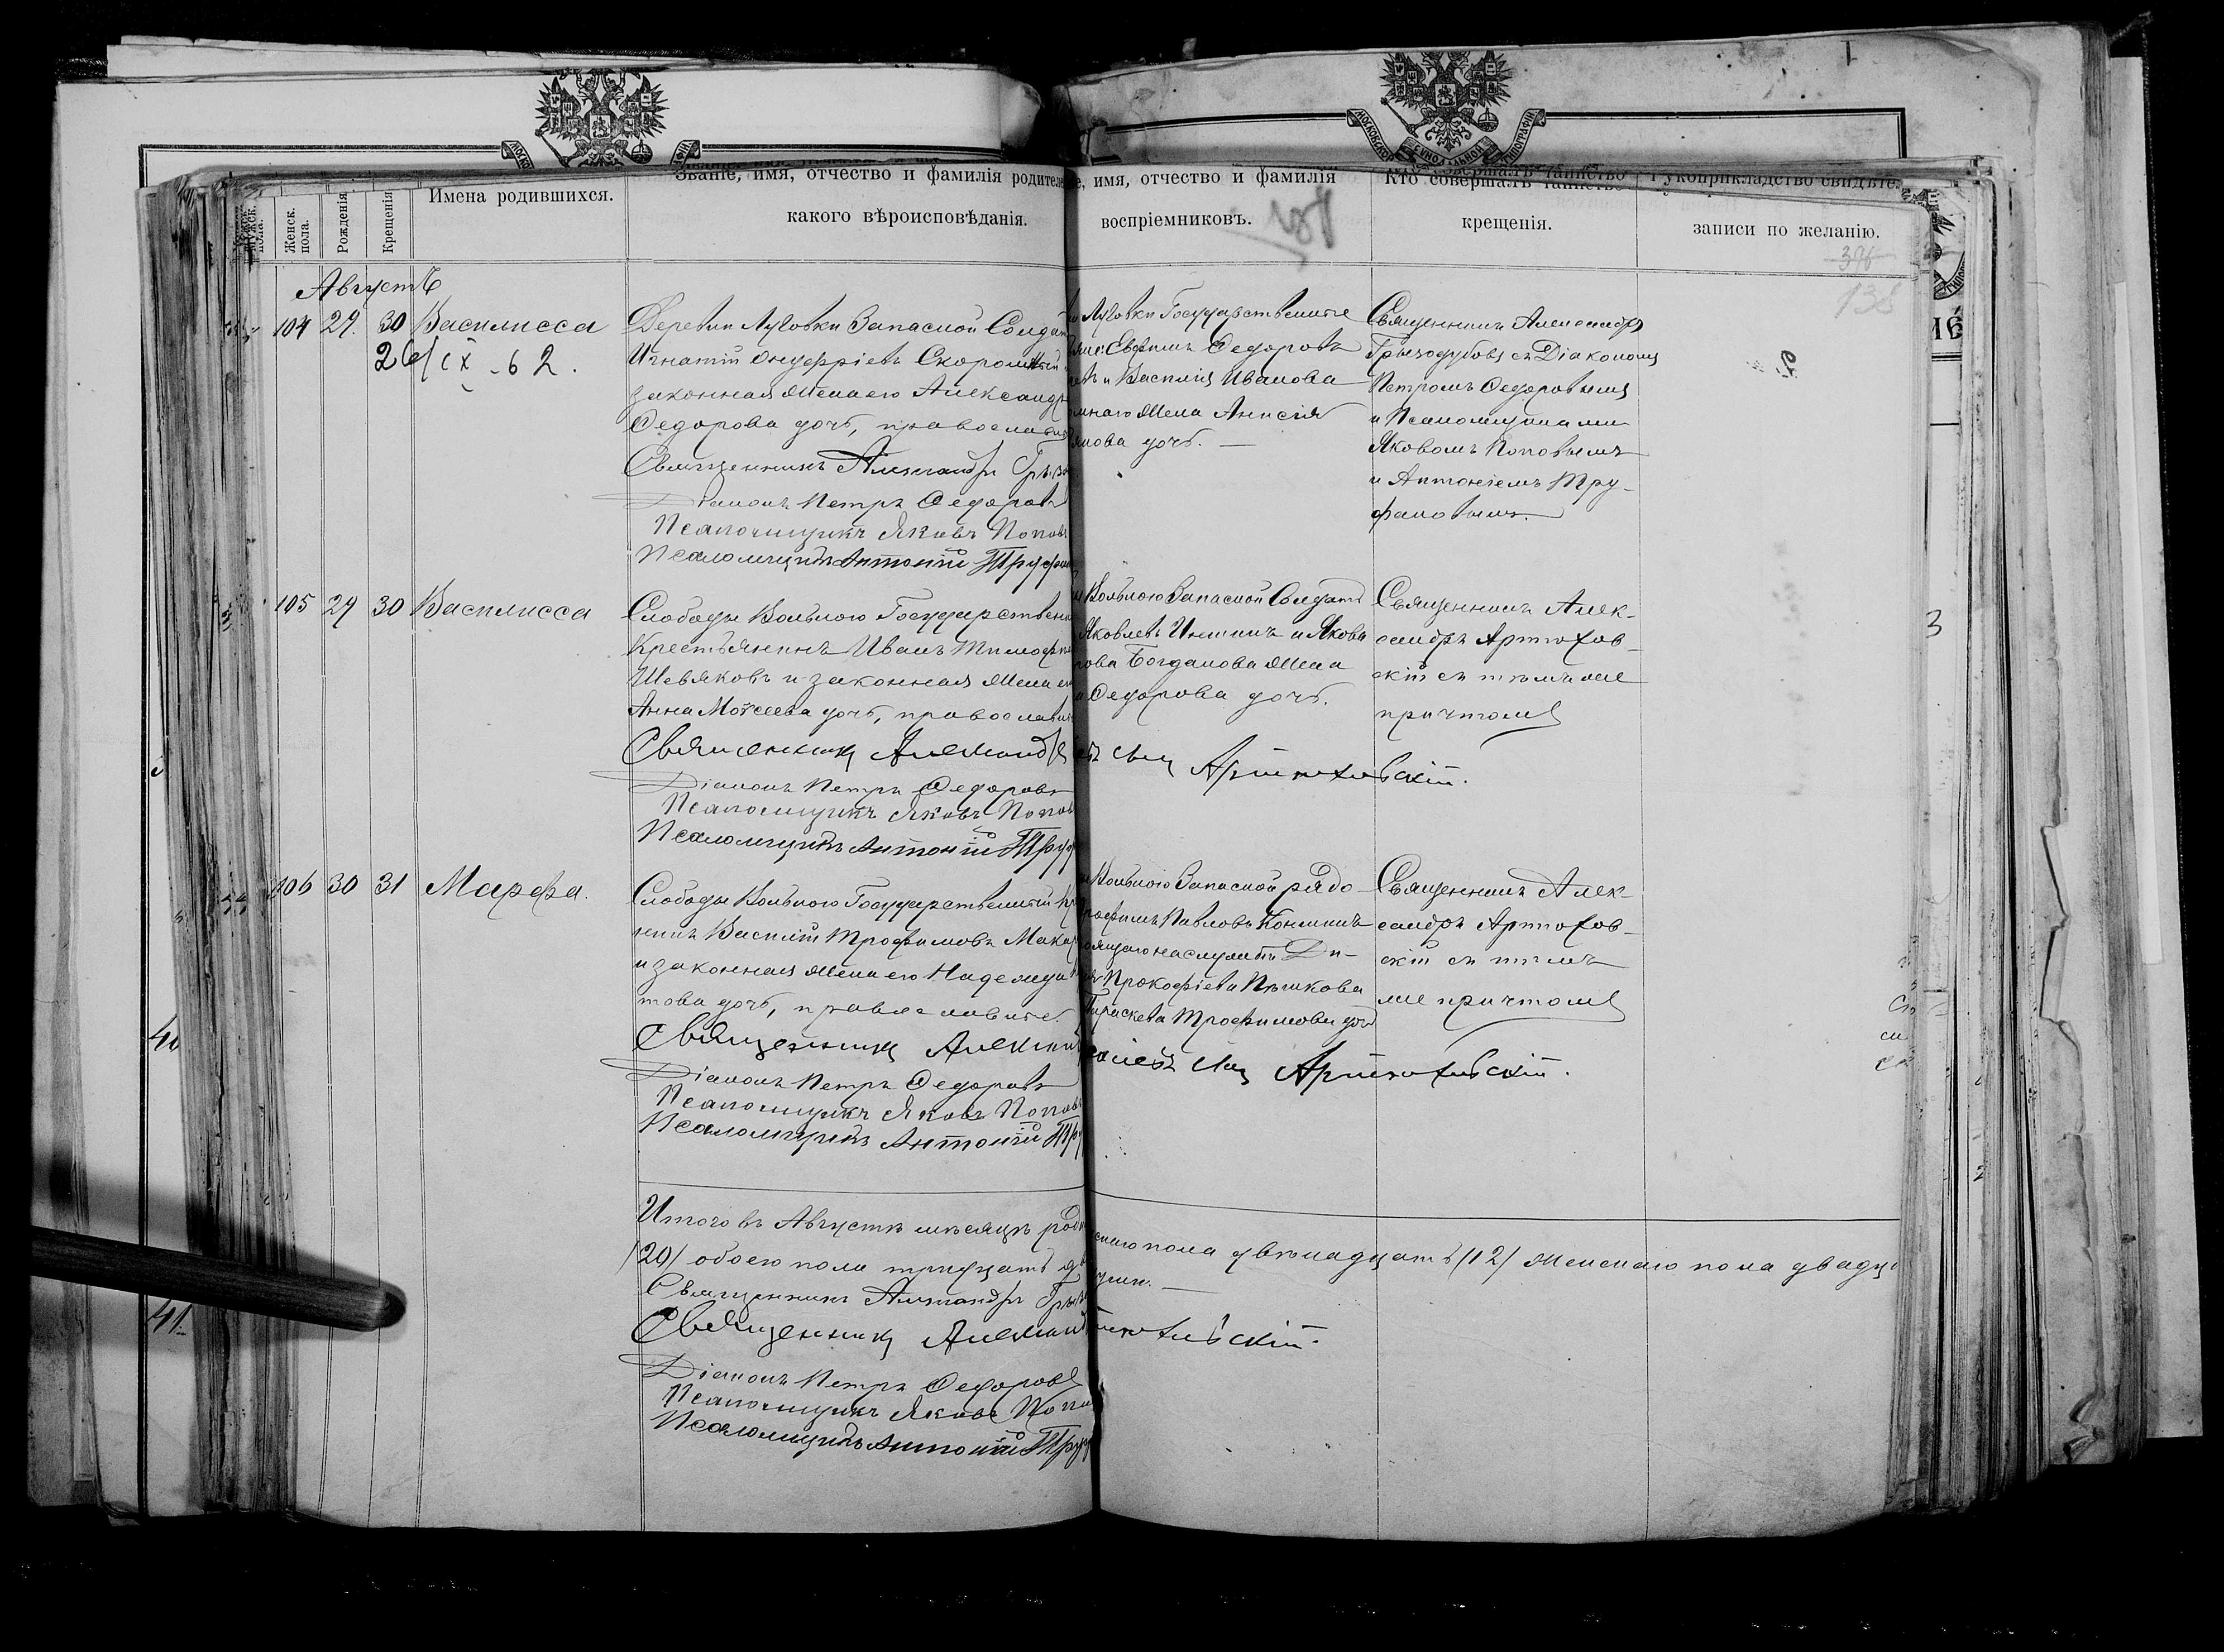 МОСКОВСКОЙ СѴНОДАЛЬНОЙ ТИПОГРАФІИ
Мужск. пола.
Женск. пола.
Рожденія
Крещенія
Имена родившихся.
Званіе, имя, отчество и фамилія родителе
какого вѣроисповѣданія.
е, имя, отчество и фамилія
воспріемниковъ.
Кто совершалъ таинство
крещенія.
Рукоприкладство свидѣте
записи по желанію.
138
Августъ
104 29. 30 Василисса
26/IX-62.
Деревни Луговки Запасной Солдат
Игнатій Онуфріевъ Скоромный
законная жена его Александр
Федорова дочь, православн
Священникъ Александръ Грызо
Діаконъ Петръ Федоровъ
Псаломщикъ Яковъ Поповъ
Псаломщикъ Антоній Труфан
Луговки Государственные
Евфимъ Федоровъ
и Василій Иванова
жена Анисія
нова дочь.
Священникъ Александръ
Грызодубовъ съ Діакономъ
Петромъ Федоровымъ
и Псаломщиками
Яковомъ Поповымъ
и Антоніемъ Тру-
фановымъ.
105 29 30 Василисса
Слободы Вольного Государственн
Крестьянинъ Иванъ Тимофѣе
Шевяковъ и законная жена ег
Анна Моѵсеева дочь, православн
Священникъ Александр
Діаконъ Петръ Федоровъ
Псаломщикъ Яковъ Попов
Псаломщикъ Антоній Труф
Вольного Запасной Солдатъ
Яковлевъ и Якова
Богданова жена
Федорова дочь.
Священникъ Алек-
сандръ Артюхов-
скій съ тѣмъ же
причтомъ
Артюховскій.
106 30 31 Марфа.
Слободы Вольного Государственный Кр
нинъ Василій Трофимовъ Макар
и законная жена его Надежда
това дочь, православные.
Священникъ Алексан
Діаконъ Петръ Федоровъ
Псаломщикъ Яковъ Поповъ
Псаломщикъ Антоній Тру
Вольного Запасной рядо-
рофимъ Павловъ Конкинъ
наслужить Ди-
Прокофіева Пѣшкова
Параскева Трофимова доч
Священникъ Алек-
сандръ Артюхов-
скій съ тѣмъ
же причтомъ
Артюховскій.
Итого въ Августѣ мѣсяцѣ роди
скаго пола двѣнадцать (12) женскаго пола двадц
/20/ обоего пола тридцать дв
души.
Священникъ Александръ Грыз
Священникъ Алексан
тюховскій.
Діаконъ Петръ Федоровъ
Псаломщикъ Яковъ Попо
Псаломщикъ Антоній Труф
40
41.
3